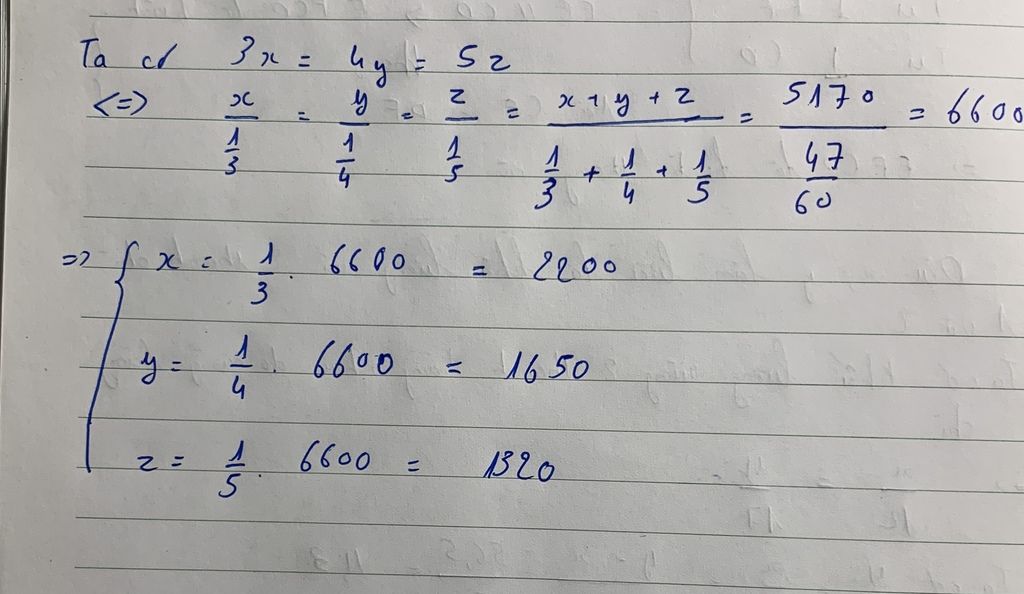 Ta có 3x = 4y = 5z
<=> x/(1/3) = y/(1/4) = z/(1/5) = (x + y + z)/(1/3 + 1/4 + 1/5) = 5170/(47/60) = 6600
=> { x = 1/3 . 6600 = 2200
y = 1/4 . 6600 = 1650
z = 1/5 . 6600 = 1320